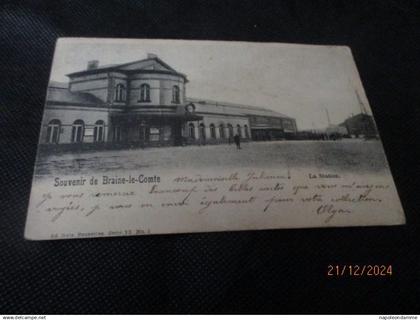 Souvenir de Braine-le-Comte
La Station.
Mademoiselle Julienne
je vous remercie beaucoup des belles cartes que vous m'avez
je vous en envoie également pour votre collection.
Ed. Nels, Bruxelles, Serie 13 No. 1
21/12/2024
www.napoleondamme.com